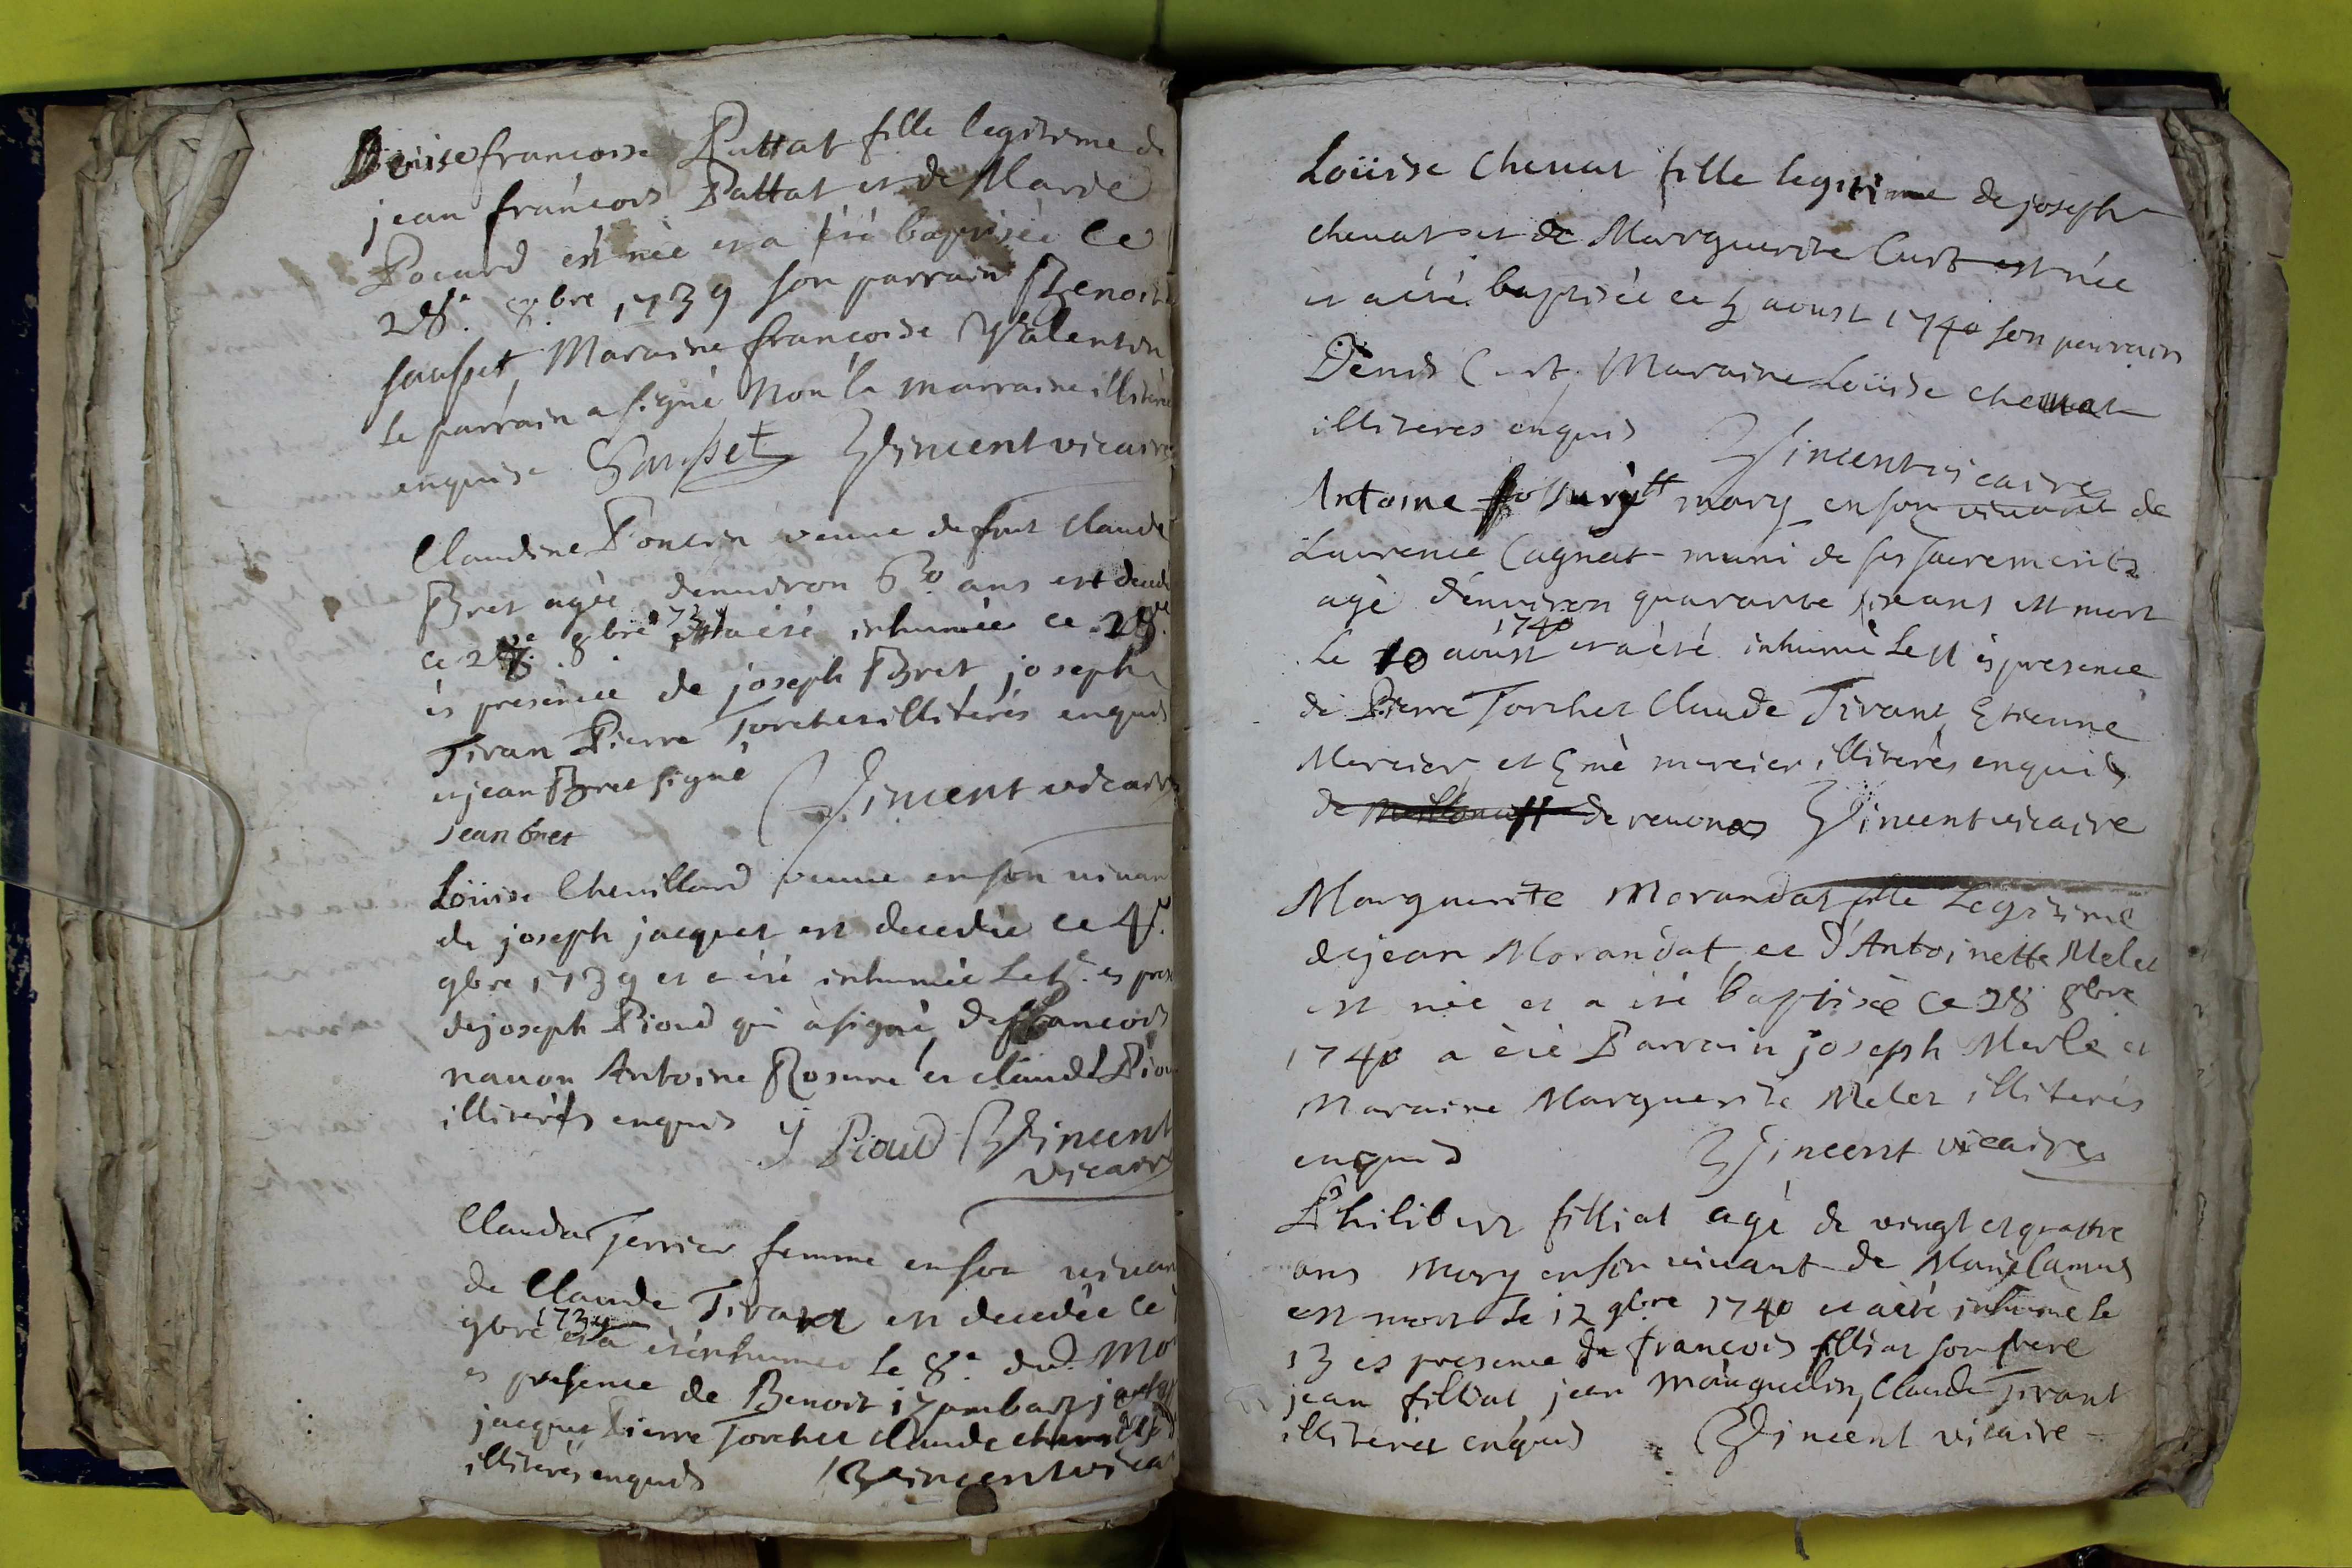 Denise francoise Puttat fille legitime de
jean francois Puttat et de Marie
Pocard est née et a été baptisée ce
28e 8bre 1739 son parrain Benoit
sausset Maraine francoise Valentin
le parrain a signé non la marraine illiterée
enquise Sausset Vincent vicaire
Claudine Poncin veuve de fut Claude
Bret agée d'environ 60 ans est decede
ce 27e 8bre 1739 et a été inhumée ce 28e
ès presence de joseph Bret joseph
Tiran Pierre Torchet illiterés enquis
et jean Bret signé Vincent vicaire
jean bret
Loüise Chevillard veuve en son vivan
de joseph jacquet est decedée ce 4e
9bre 1739 et a été inhumée le 5e es prese
de joseph Pioud qui a signé de francois
navon Antoine Rosure et claude Piou
illiterés enquis j Pioud Vincent
vicaire
Clauda Terrier femme en son vivan
de Claude Tirant est decedée ce
9bre 1739 et a été inhumée le 8e dud. Mo
es presence de Benoit izambart
jacquet Pierre Torchet claude
illiterés enquis Vincent vica
Loüise Chenat fille legitime de joseph
chenat et de Marguerite Curt est née
et a été baptisée ce 5 aoust 1740 son parrain
Denis Curt Maraine Loüise chenat
illiteres enquis Vincent vicaire
Antoine mary en son vivant de
Laurence Cagnat muni de ses sacrements
agé d'environ quarante six ans est mort
le 10 aoust 1740 et a été inhumé le 11 ès presence
de Pierre Torchet Claude Tirant Etienne
Mercier et Emé mercier illiterés enquis
de de revonas Vincent vicaire
Marguerite Morandat fille Legitime
de jean Morandat et d'Antoinette Melet
est née et a été baptisée ce 28 8bre
1740 a été Parrain joseph Merle et
Maraine Marguerite Melet illiterés
enquis Vincent vicaire
Philibert filliat agé de vingt et quattre
ans mary en son vivant de Marie Camus
est mort le 12 9bre 1740 et a été inhumé le
13 ès presence de francois filliat son frere
jean filliat jean mauquelin, Claude Tirant
illiteres enquis Vincent vicaire